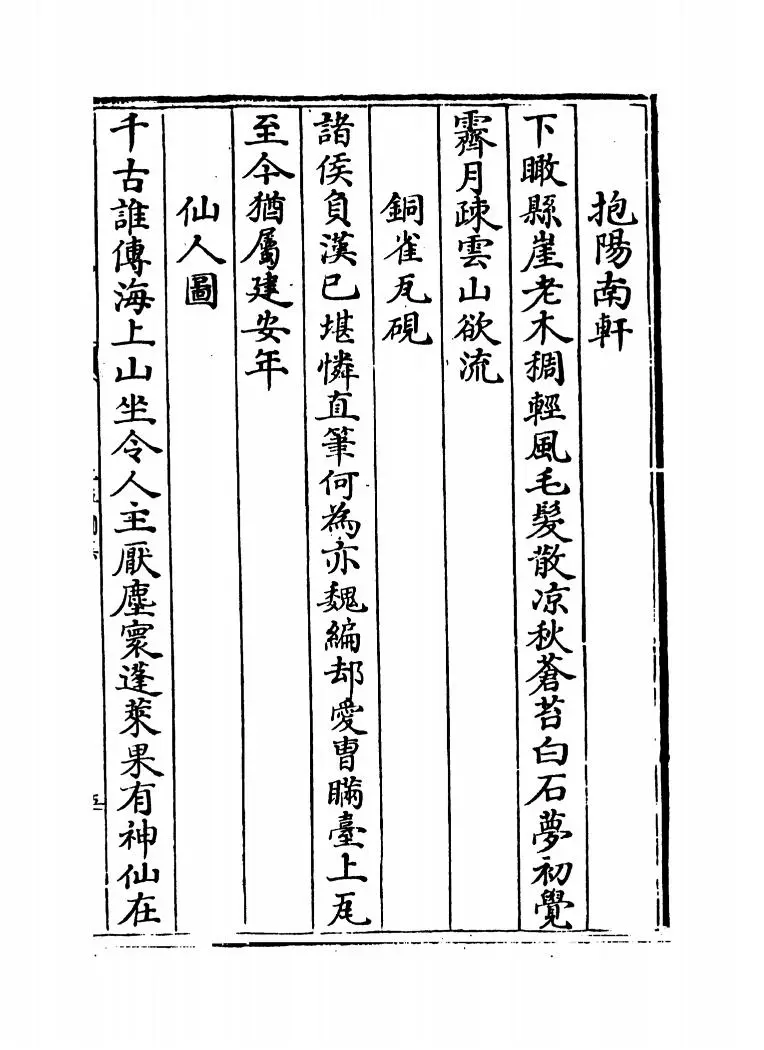 抱陽南軒
下瞰縣崖老木稠輕風毛髮散凉秋蒼苔白石夢初覺
霽月疎雲山欲流
銅雀瓦硯
諸侯負漢已堪憐直筆何為亦魏編却愛曹瞞臺上瓦
至今猶屬建安年
仙人圖
千古誰傳海上山坐令人主厭塵寰蓬萊果有神仙在